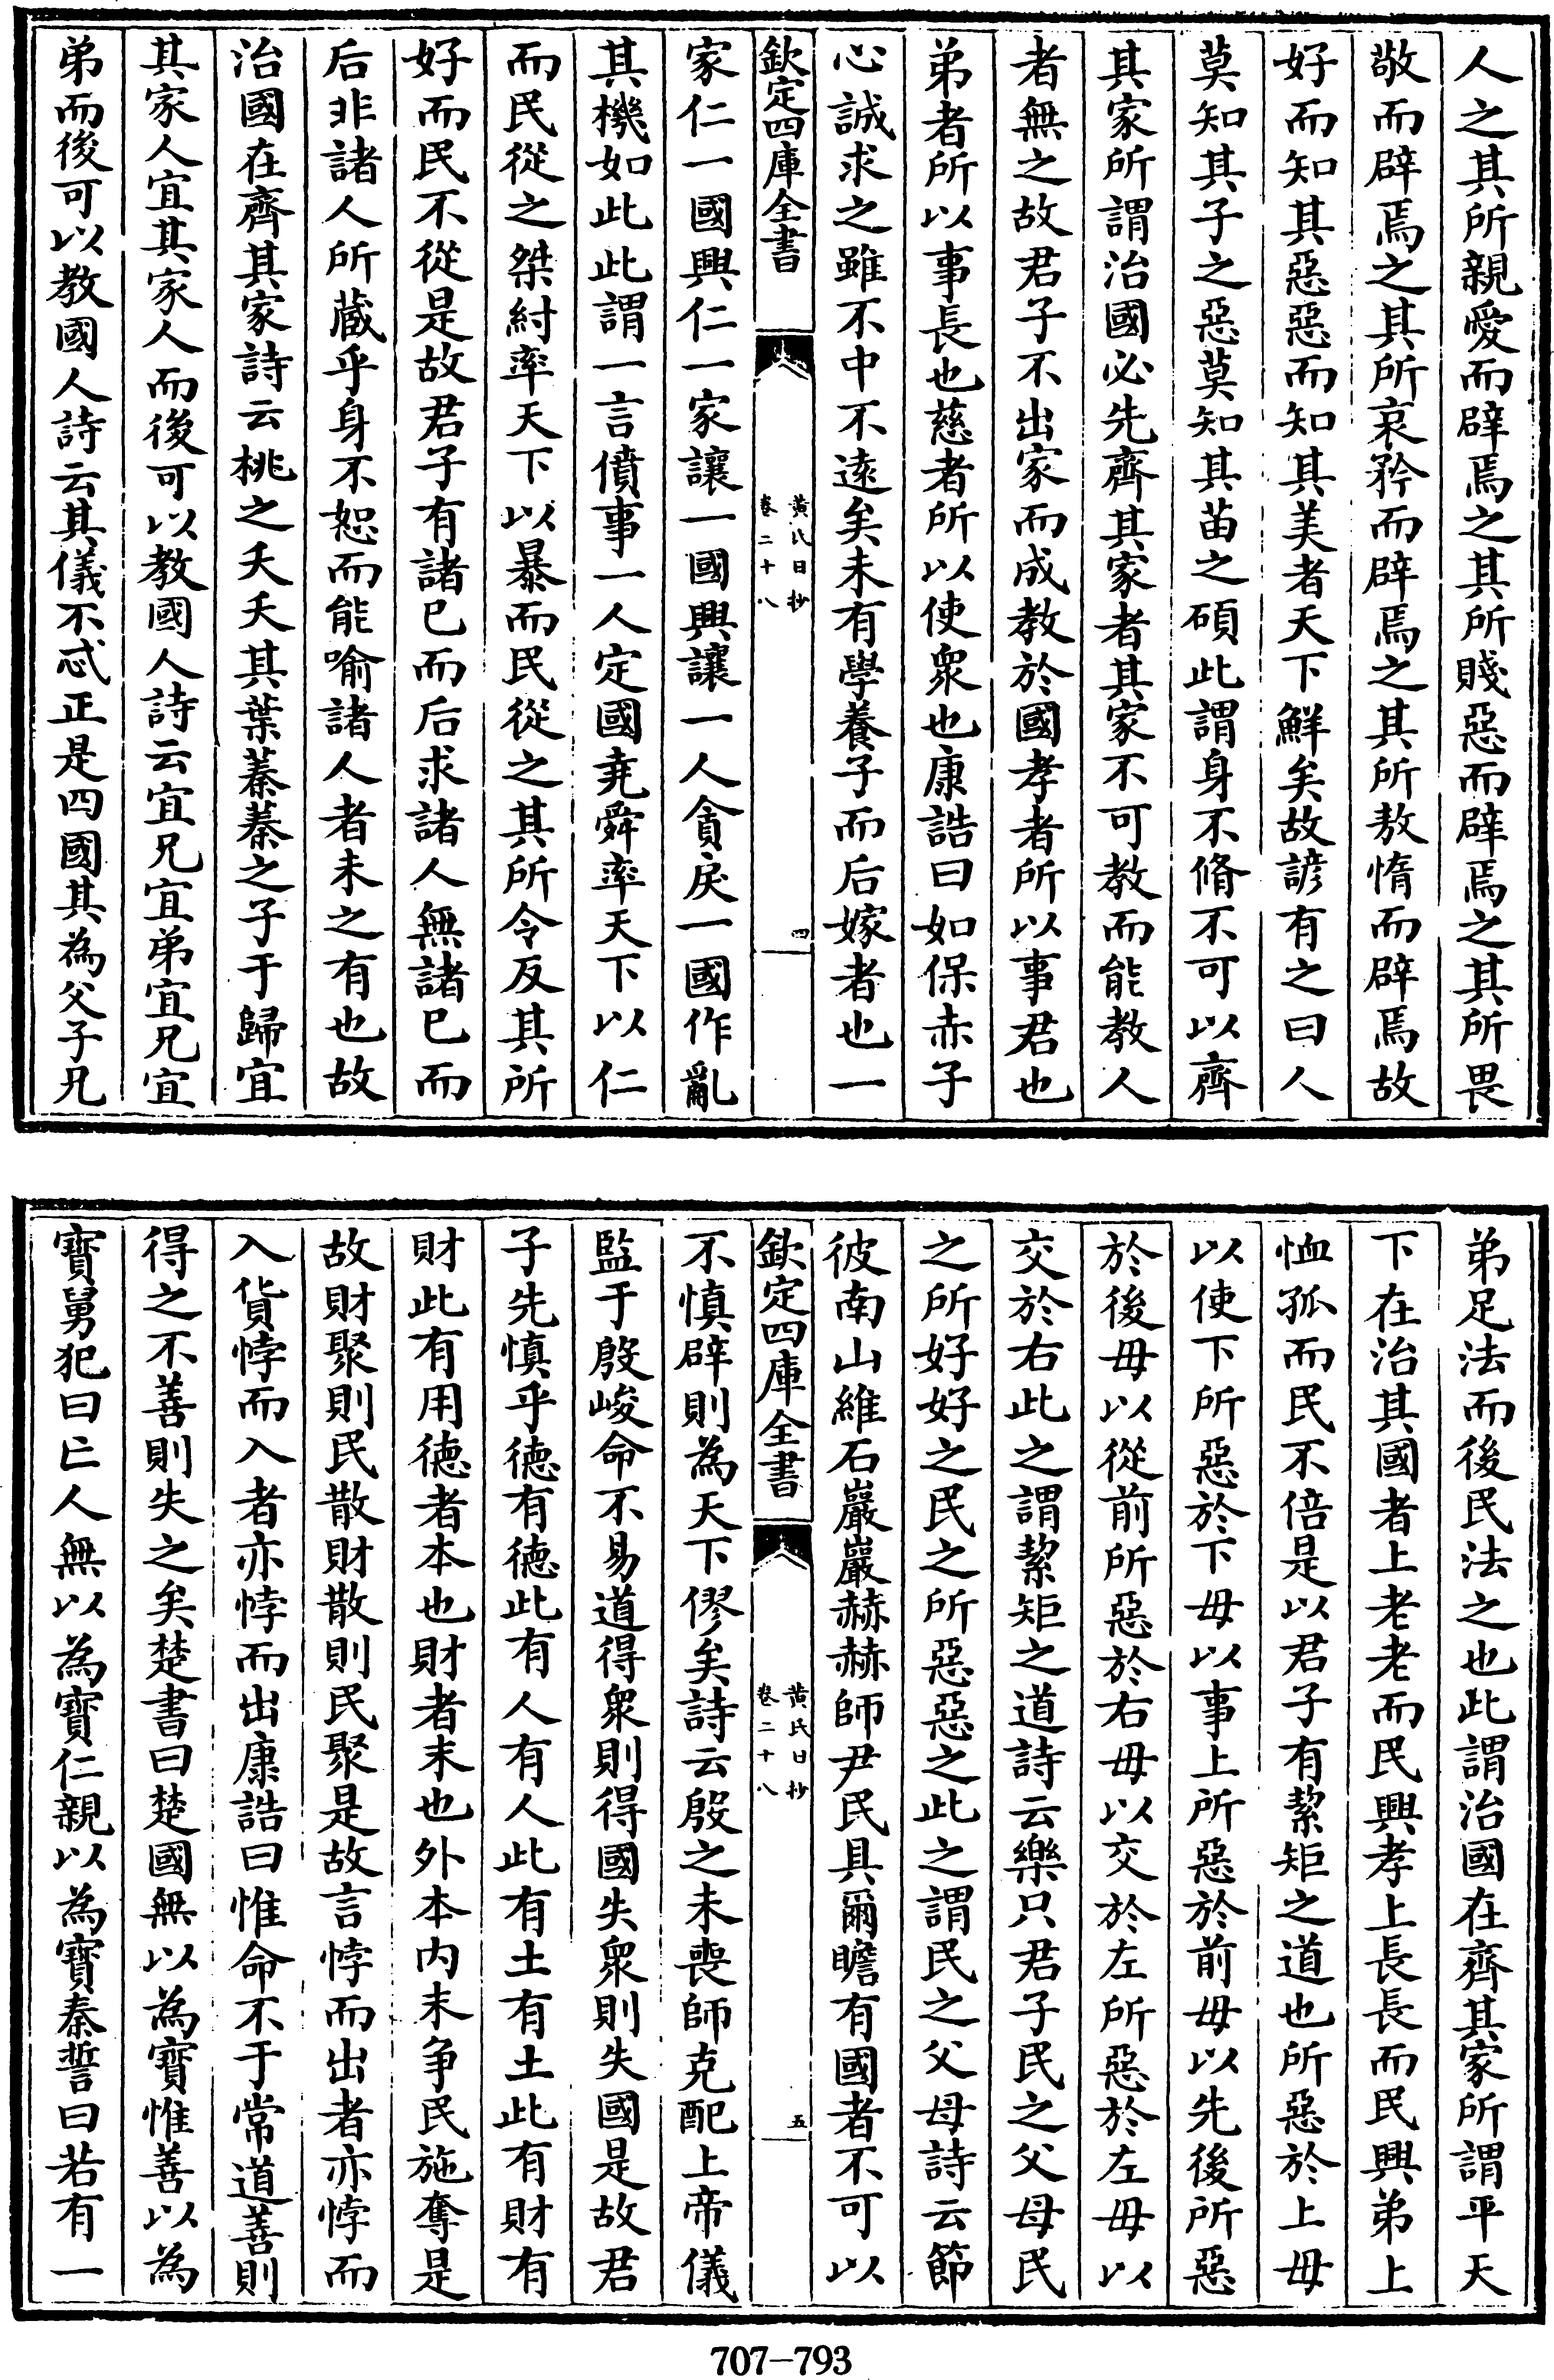 人之其所親愛而辟焉之其所賤惡而辟焉之其所畏
敬而辟焉之其所哀矜而辟焉之其所敖惰而辟焉故
好而知其惡惡而知其美者天下鮮矣故諺有之曰人
莫知其子之惡莫知其苗之碩此謂身不脩不可以齊
其家所謂治國必先齊其家者其家不可教而能教人
者無之故君子不出家而成教於國孝者所以事君也
弟者所以事長也慈者所以使衆也康誥曰如保赤子
心誠求之雖不中不遠矣未有學養子而后嫁者也一
欽定四庫全書
黃氏日抄
卷二十八
四
家仁一國興仁一家讓一國興讓一人貪戾一國作亂
其機如此此謂一言僨事一人定國堯舜率天下以仁
而民從之桀紂率天下以暴而民從之其所令反其所
好而民不從是故君子有諸已而后求諸人無諸已而
后非諸人所蔵乎身不恕而能喻諸人者未之有也故
治國在齊其家詩云桃之夭夭其葉蓁蓁之子于歸宜
其家人宜其家人而後可以教國人詩云宜兄宜弟宜兄宜
弟而後可以教國人詩云其儀不忒正是四國其為父子兄
弟足法而後民法之也此謂治國在齊其家所謂平天
下在治其國者上老老而民興孝上長長而民興弟上
恤孤而民不倍是以君子有絜矩之道也所惡於上毋
以使下所惡於下毋以事上所惡於前毋以先後所惡
於後毋以從前所惡於右毋以交於左所惡於左毋以
交於右此之謂絜矩之道詩云樂只君子民之父母民
之所好好之民之所惡惡之此之謂民之父母詩云節
彼南山維石巖巖赫赫師尹民具爾瞻有國者不可以
欽定四庫全書
黃氏日抄
卷二十八
五
不慎辟則為天下僇矣詩云殷之未喪師克配上帝儀
監于殷峻命不易道得衆則得國失衆則失國是故君
子先慎乎徳有徳此有人有人此有土有土此有財有
財此有用徳者本也財者末也外本内末争民施奪是
故財聚則民散財散則民聚是故言悖而出者亦悖而
入貨悖而入者亦悖而出康誥曰惟命不于常道善則
得之不善則失之矣楚書曰楚國無以為寳惟善以為
寳舅犯曰亡人無以為寳仁親以為寳秦誓曰若有一
707-793